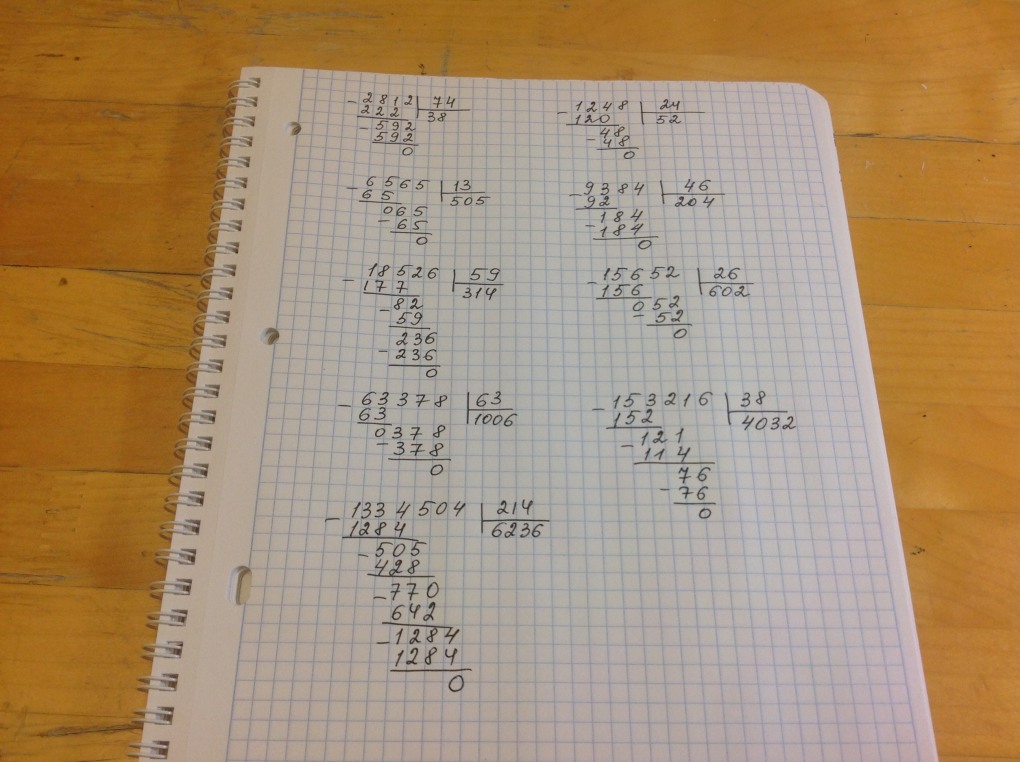 - 2812 | 74
222 | 38
- 592
592
0
- 1248 | 24
120 | 52
- 48
48
0
- 6565 | 13
65 | 505
065
- 65
0
- 9384 | 46
92 | 204
- 184
184
0
- 18526 | 59
177 | 314
- 82
59
236
- 236
0
- 15652 | 26
156 | 602
052
- 52
0
- 63378 | 63
63 | 1006
0378
- 378
0
- 153216 | 38
152 | 4032
- 121
114
76
- 76
0
- 1334504 | 214
1284 | 6236
- 505
428
- 770
642
- 1284
1284
0